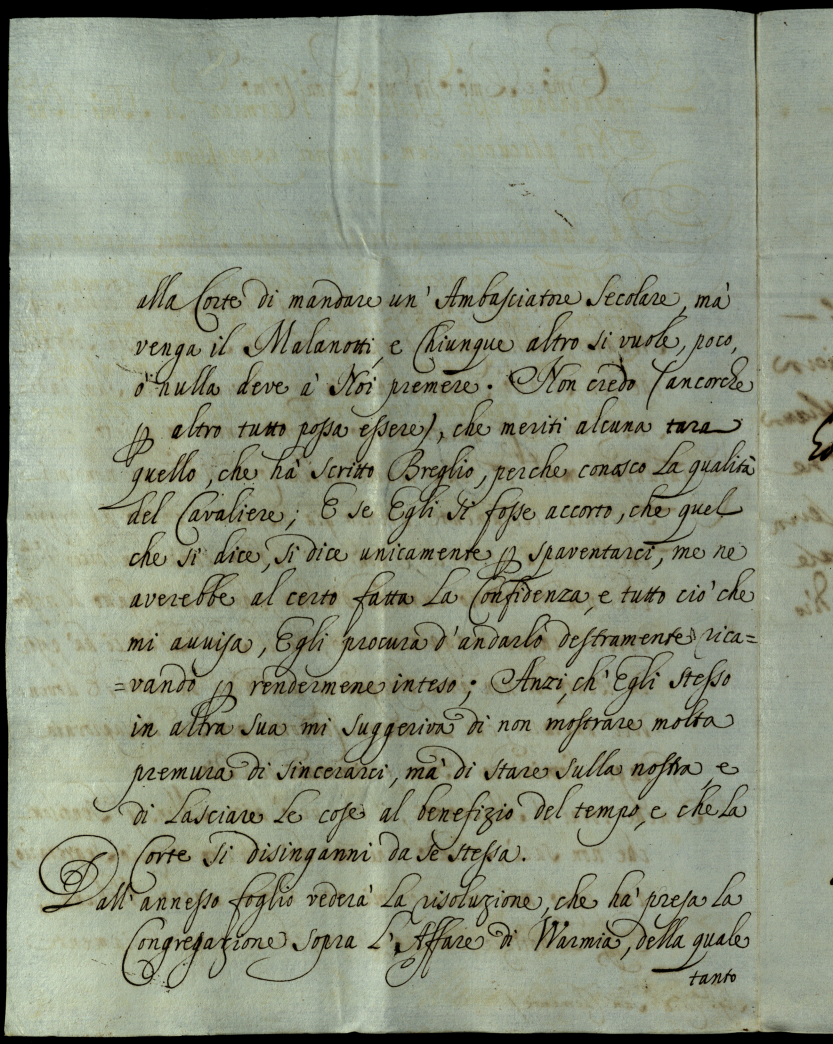 alla Corte di mandare un' Ambasciatore Secolare, mà
venga il Malanotti, e Chiunque altro si vuole, poco,
ò nulla deve à Noi premere. Non credo (ancorche
ꝑ altro tutto possa essere), che meriti alcuna tara
quello, che hà scritto Breglio, perche conosco la qualità
del Cavaliere; E se Egli si fosse accorto, che quel
che si dice, si dice unicamente ꝑ spaventarci, me ne
averebbe al certo fatta la Confidenza, e tutto ciò che
mi avvisa, Egli procura d'andarlo destramente rica=
=vando ꝑ rendermene inteso; Anzi, ch' Egli stesso
in altra sua mi suggeriva di non mostrare molta
premura di sincerarci, mà di stare sulla nostra, e
di lasciare le cose al benefizio del tempo, e che la
Corte si disinganni da sè stessa.
Dall' annesso foglio vederà la risoluzione, che hà presa la
Congregazione sopra l'Affare di Warmia, della quale
tanto